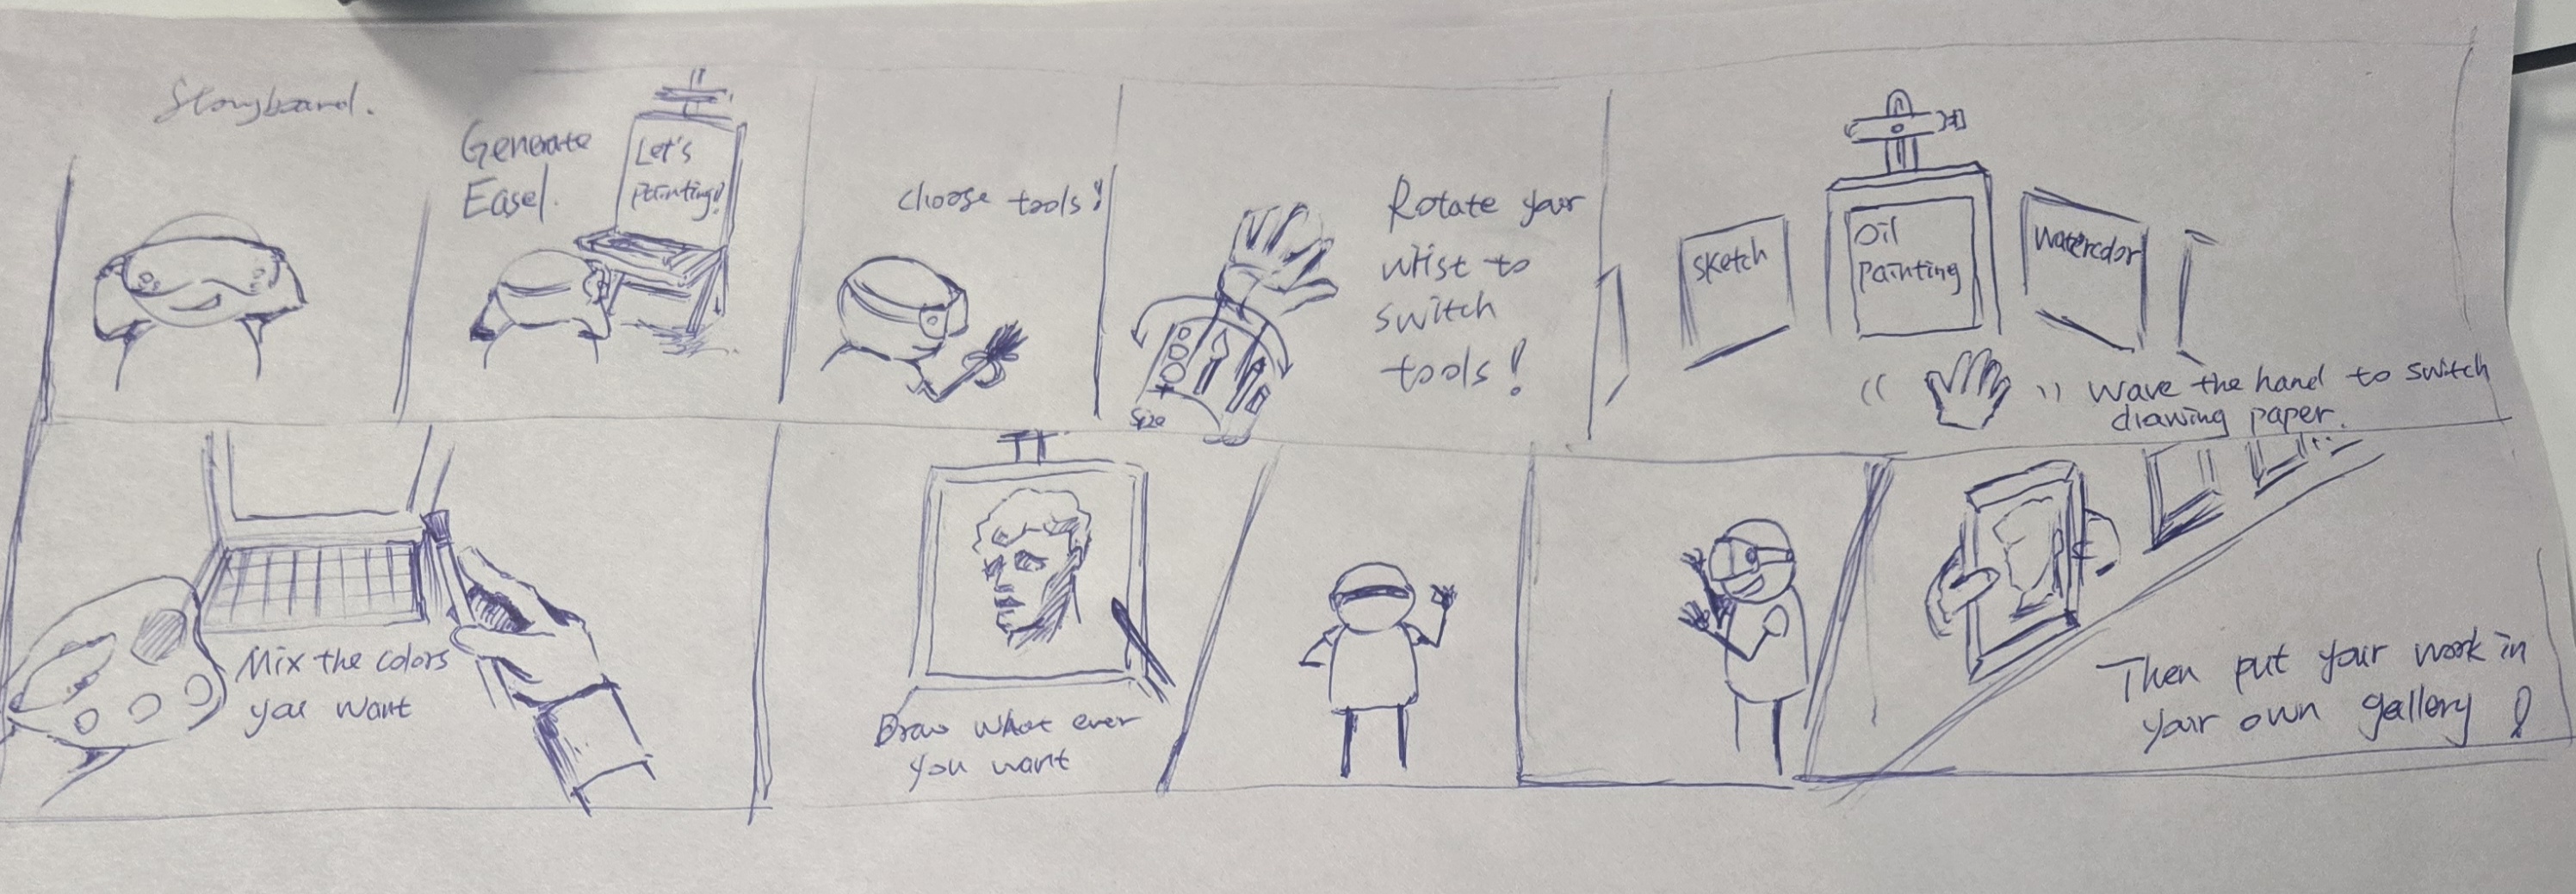 Storyboard.
Generate
Easel.
Let's
painting!
choose tools!
Size
Rotate your
wrist to
switch
tools!
Sketch
Oil
painting
Watercolor
wave the hand to switch
drawing paper.
Mix the colors
you want
Draw what ever
you want
Then put your work in
your own gallery!